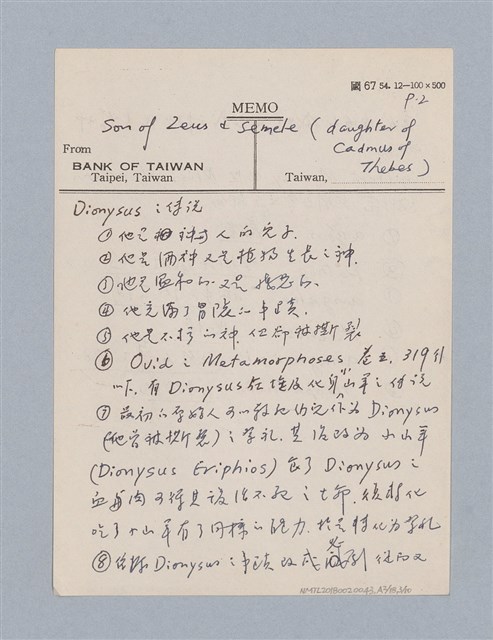 國 67 54. 12—100×500
P.2
MEMO
Son of Zeus & Semele ( daughter of
Cadmus of
Thebes )
From
BANK OF TAIWAN
Taipei, Taiwan
Taiwan,
Dionysus 之傳說
① 他是神與人的兒子.
② 他是酒神又是植物生長之神.
③ 他是溫和的又是
④ 他充滿了冒險的事蹟.
⑤ 他是不朽的神, 但卻被撕裂
⑥ Ovid 之 Metamorphoses 卷五, 319行
以下, 有 Dionysus 在埃及化身"山羊"之傳說
⑦ 最初 原始人 為 Dionysus
(他曾被撕裂) 之祭禮, 其後改為小山羊
(Dionysus Eriphios) 食了 Dionysus 之
血與肉可得其 不死之生命,
吃了小山羊有了同樣的能力, 於是轉化為祭禮
⑧ Dionysus 之事蹟改成 悲劇
NMTL20180020043_A3/18_1/10